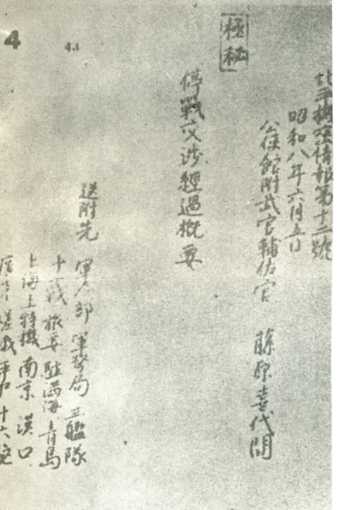 極秘
北平機密情報第十二號
昭和八年六月五日
公使館附武官輔佐官 藤原喜代間
停戰交渉經過概要
送附先 軍令部 軍務局 三艦隊
十一戰 旅要 駐滿海 青島
上海 上特機 南京 漢口
4
4.1